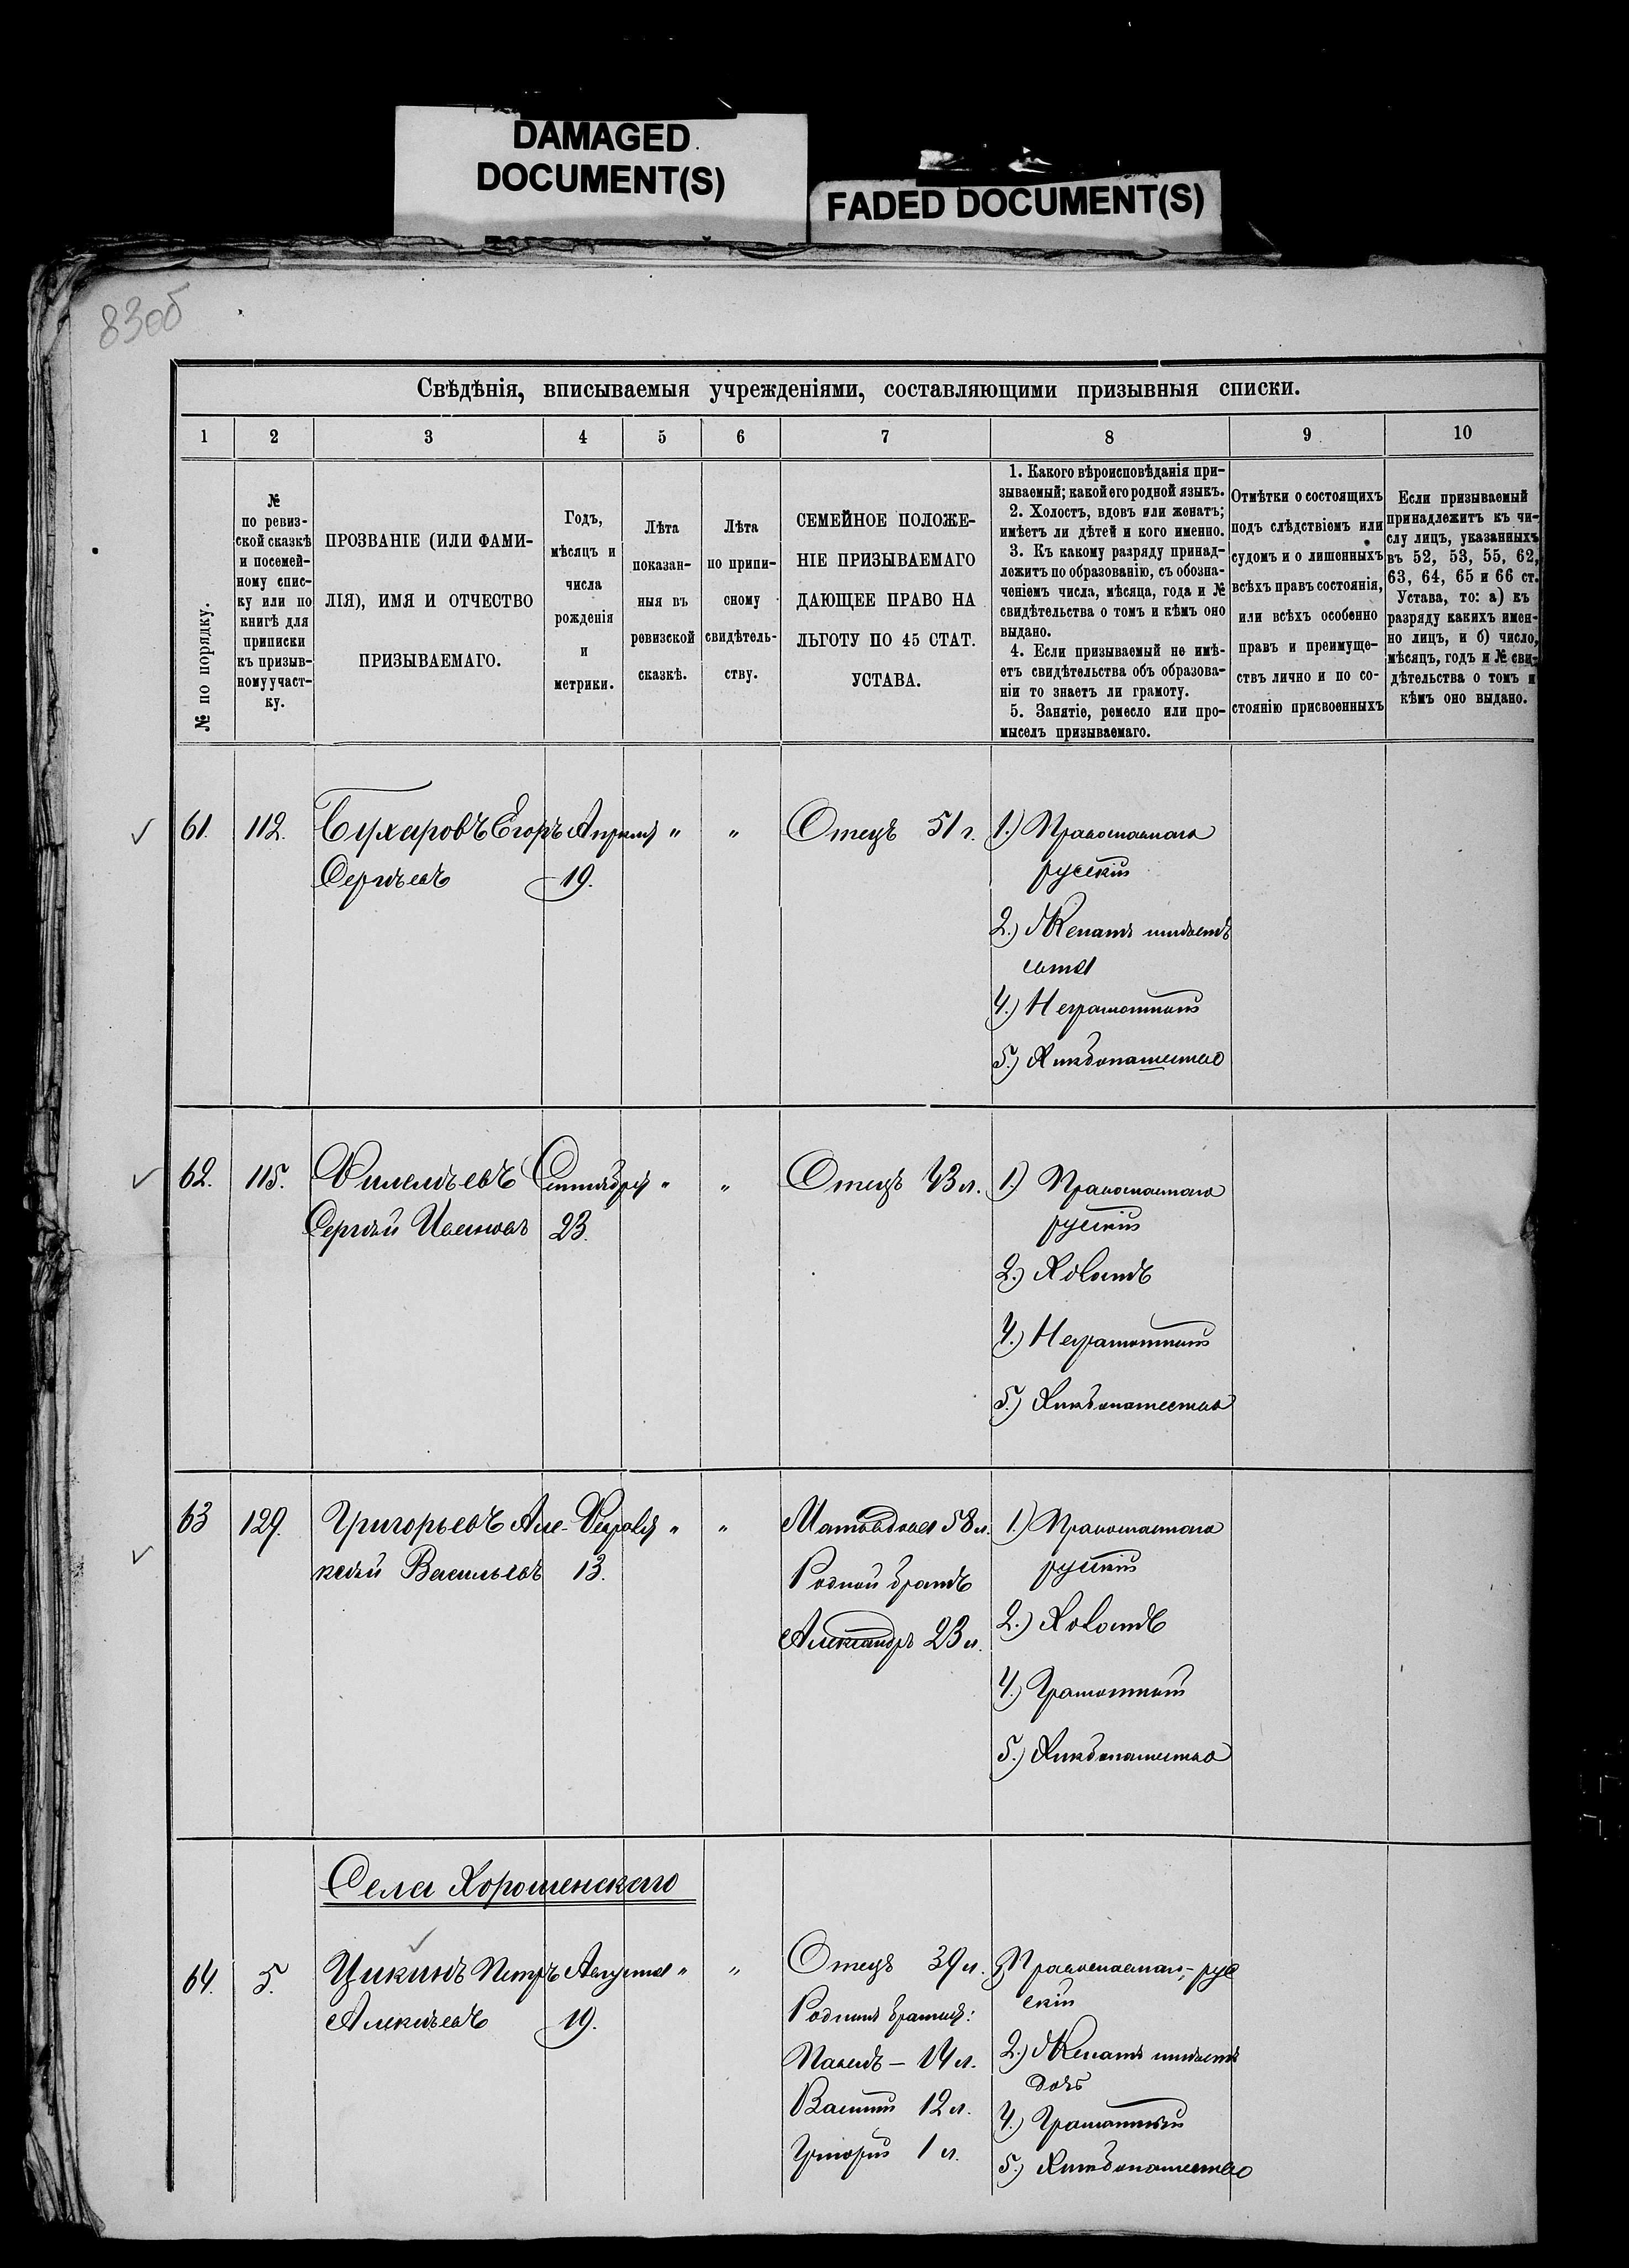 DAMAGED
DOCUMENT(S)
FADED DOCUMENT(S)
83об
Свѣдѣнія, вписываемыя учрежденіями, составляющими призывныя списки.
1 2 3 4 5 6 7 8 9 10
№ по порядку.
№
по ревиз-
ской сказкѣ
и посемей-
ному спис-
ку или по
книгѣ для
приписки
къ призыв-
ному участ-
ку.
ПРОЗВАНІЕ (ИЛИ ФАМИ-
ЛІЯ), ИМЯ И ОТЧЕСТВО
ПРИЗЫВАЕМАГО.
Годъ,
мѣсяцъ и
числа
рожденія
и
метрики.
Лѣта
показан-
ныя въ
ревизской
сказкѣ.
Лѣта
по припи-
сному
свидѣтель-
ству.
СЕМЕЙНОЕ ПОЛОЖЕ-
НІЕ ПРИЗЫВАЕМАГО
ДАЮЩЕЕ ПРАВО НА
ЛЬГОТУ ПО 45 СТАТ.
УСТАВА.
1. Какого вѣроисповѣданія при-
зываемый; какой его родной языкъ.
2. Холостъ, вдовъ или женатъ;
имѣетъ ли дѣтей и кого именно.
3. Къ какому разряду принад-
лежитъ по образованію, съ обозна-
ченіемъ числа, мѣсяца, года и №
свидѣтельства о томъ и кѣмъ оно
выдано.
4. Если призываемый не имѣ-
етъ свидѣтельства объ образова-
ніи то знаетъ ли грамоту.
5. Занятіе, ремесло или про-
мыселъ призываемаго.
Отмѣтки о состоящихъ
подъ слѣдствіемъ или
судомъ и о лишенныхъ
всѣхъ правъ состоянія,
или всѣхъ особенно
правъ и преимуще-
ствъ лично и по со-
стоянію присвоенныхъ
Если призываемый
принадлежитъ къ чи-
слу лицъ, указанныхъ
въ 52, 53, 55, 62,
63, 64, 65 и 66 ст.
Устава, то: а) къ
разряду какихъ имен-
но лицъ, и б) число,
мѣсяцъ, годъ и № сви-
дѣтельства о томъ и
кѣмъ оно выдано.
61. 112. Бухаровъ Егоръ Апрѣля " " Отецъ 51 г. 1.) Православнаго
Сергѣевъ 19. русскій
2.) Женатъ имѣетъ
сына
4.) Неграмотный
5.) Хлѣбопашество
62. 115. Сентября " " Отецъ 43 л. 1.) Православнаго
Сергѣй Ивановъ 23. русскій
2.) Холостъ
4.) Неграмотный
5.) Хлѣбопашество
63 129. Григорьевъ Але- Февраля " " Мать вдова 58 л. 1.) Православнаго
ксѣй Васильевъ 13. Родной братъ русскій
Александръ 23 л. 2.) Холостъ
4.) Грамотный
5.) Хлѣбопашество
Села Хорошенскаго
64. 5. Цикинъ Петръ Августа " " Отецъ 39 л. Православнаго, рус
Алексѣевъ 19. Родныя братья: скій
Павелъ – 14 л. 2.) Женатъ имѣетъ
дочь
Василій 12 л. 4.) Грамотный
Григорій 1 л. 5.) Хлѣбопашество